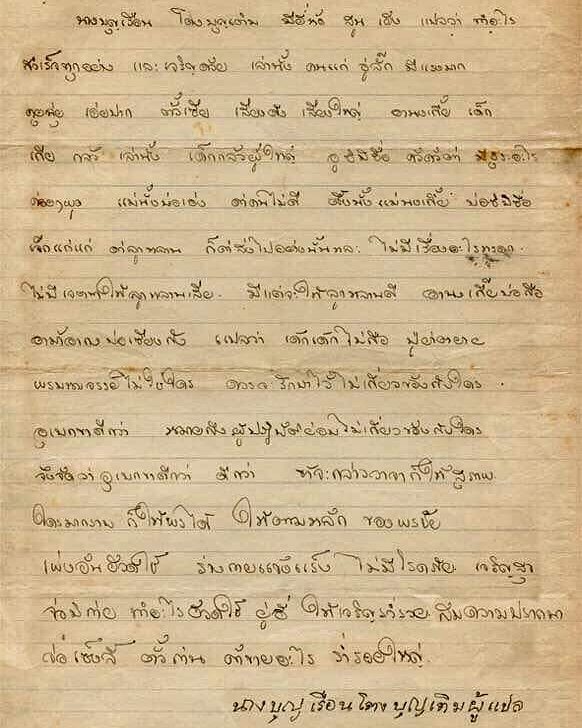 นางบุญเรือน โตงบุญเติม มีอี่นัด ฮุน เฮ็ง แปลว่า ทำอะไร
สำเร็จทุกอย่าง และเจริญด้วย เล่านั้ง คนแก่ ฮู่ลั๊ก มีแรงมาก
เอ่ยปาก ตั้วเซีย เสียงดัง เสียงใหญ่ อานงเกี้ย เด็ก
เกีย กลัว เล่านั้ง เด็กกลัวผู้ใหญ่ อูซิมิชื่อ มีธุระอะไร
แม่นั้งบ่อเฮง ด่าคนไม่ดี บ่อซิมิชื่อ
เด็กแก่แก่ ด่าลูกหลาน ก็ด่าส่งไปอย่างนั้นหละ ไม่มีเรื่องอะไร
ไม่มีเจตนาให้ลูกหลานเสีย มีแต่จะให้ลูกหลานดี อานงเกี้ยบ่อสือ
บ่อเซียงกัง แปลว่า เด็กเด็กไม่สือ ปู่ย่าตายาย
พรหมจรรย์ไม่ใช่ใคร ควรจะรักษาไว้ไม่เกี่ยวข้องกับใคร
อุเบกขาดีกว่า หมายถึงผู้ปฏิบัติย่อมไม่เกี่ยวข้องกับใคร
จึงชื่อว่าอุเบกขาดีกว่า ดีกว่า ถ้าจะกล่าววาจาก็ให้สุภาพ
ใครมากราบ ก็ให้พรได้ ให้ตามหลัก ของพรชัย
เพ่งอั้นฮ้วดใช้ ร่างกายแข็งแร็ง ไม่มีโรคภัย เจริญสุข
จ่อมิก่าย ทำอะไรฮ้วดใช้ อู่ซี่ ให้เจริญร่ำรวย สมความปรารถนา
ค้าขายอะไร ร่ำรวยใหญ่
นางบุญเรือนโตงบุญเติมผู้แปล